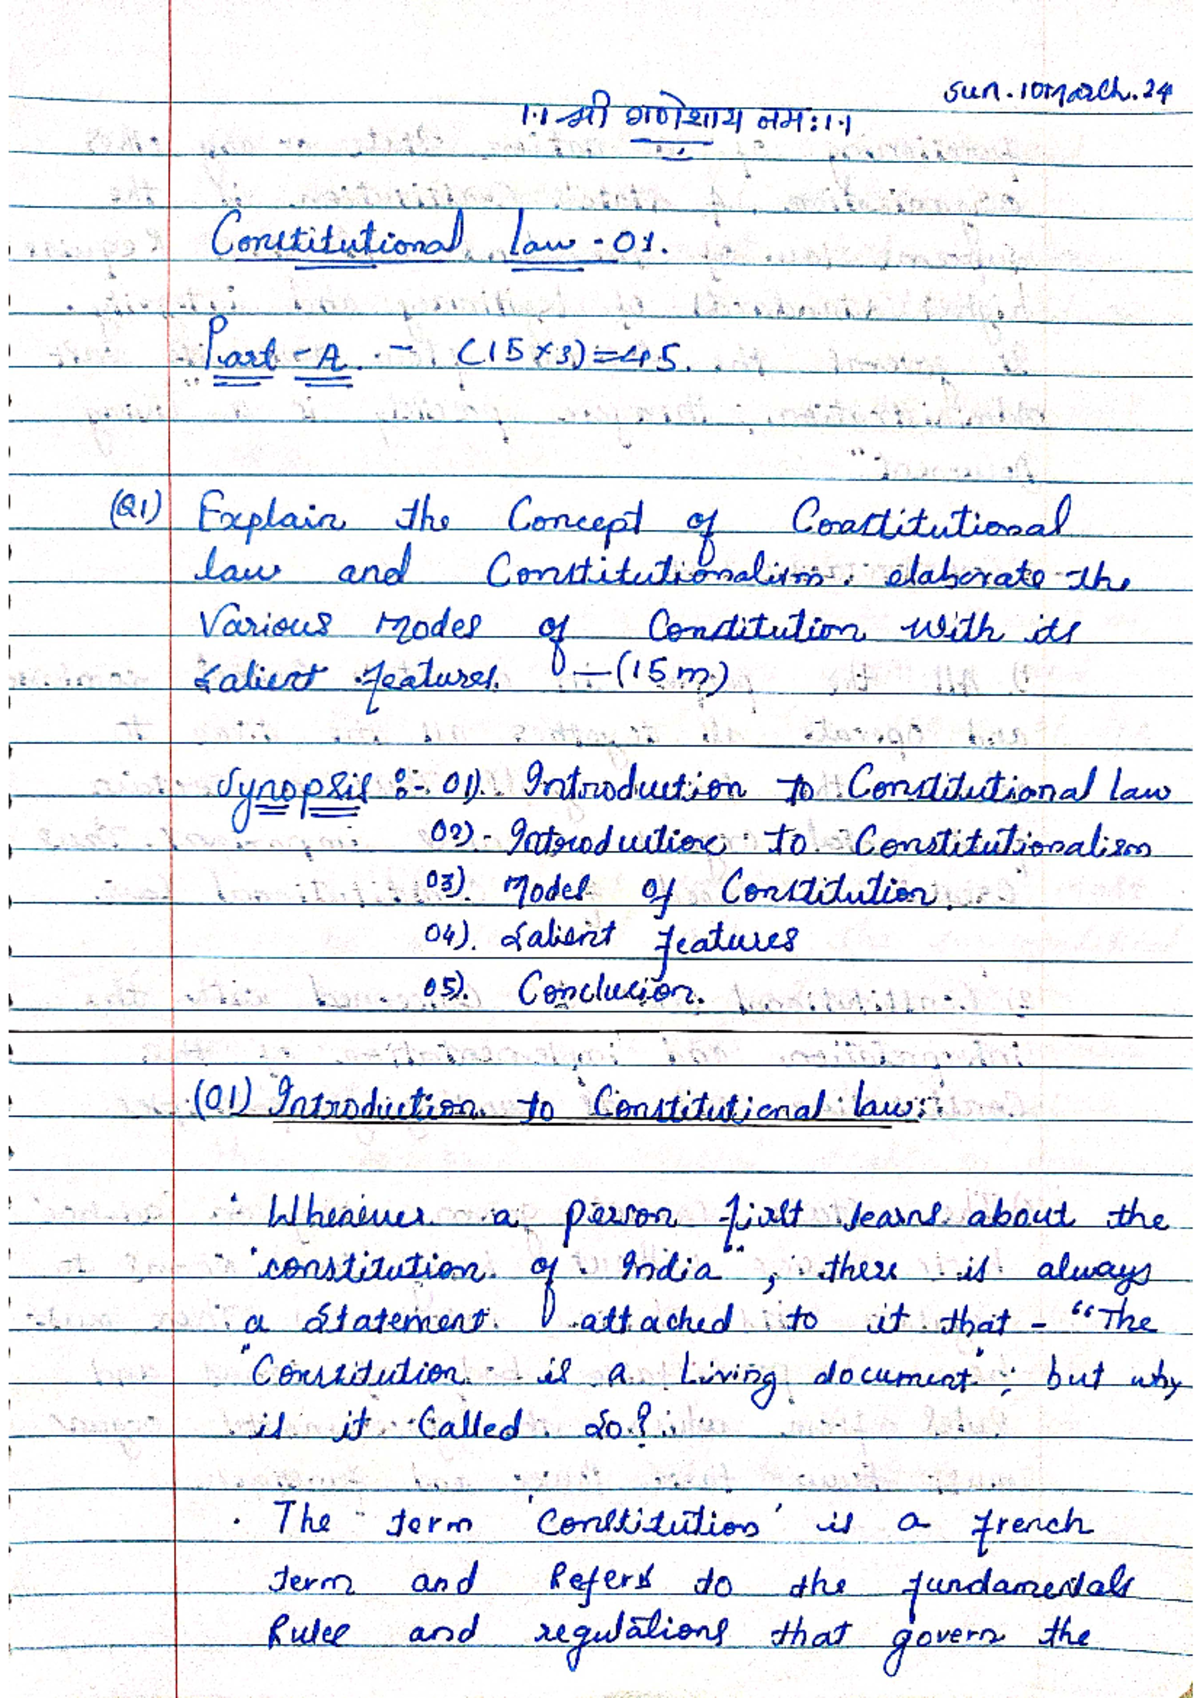 Sun. 10 March. 24
।.। श्री गणेशाय नमः ।.।
Constitutional Law - 01.
Part - A. - (15 x 3) = 45.
(Q1) Explain the Concept of Constitutional
law and Constitutionalism. elaborate the
Various Modes of Constitution with its
Salient features. - (15 m)
Synopsis :- 01). Introduction to Constitutional law
02) - Introduction to Constitutionalism
03). Model of Constitution.
04). Salient features
05). Conclusion.
(01) Introduction to Constitutional law:
• Whenever a person first learns about the
"constitution of India", there is always
a Statement attached to it that - "The
"Constitution is a Living document"; but why
is it Called So?
• The term 'Constitution' is a french
term and Refers to the fundamentals
Rules and regulations that govern the